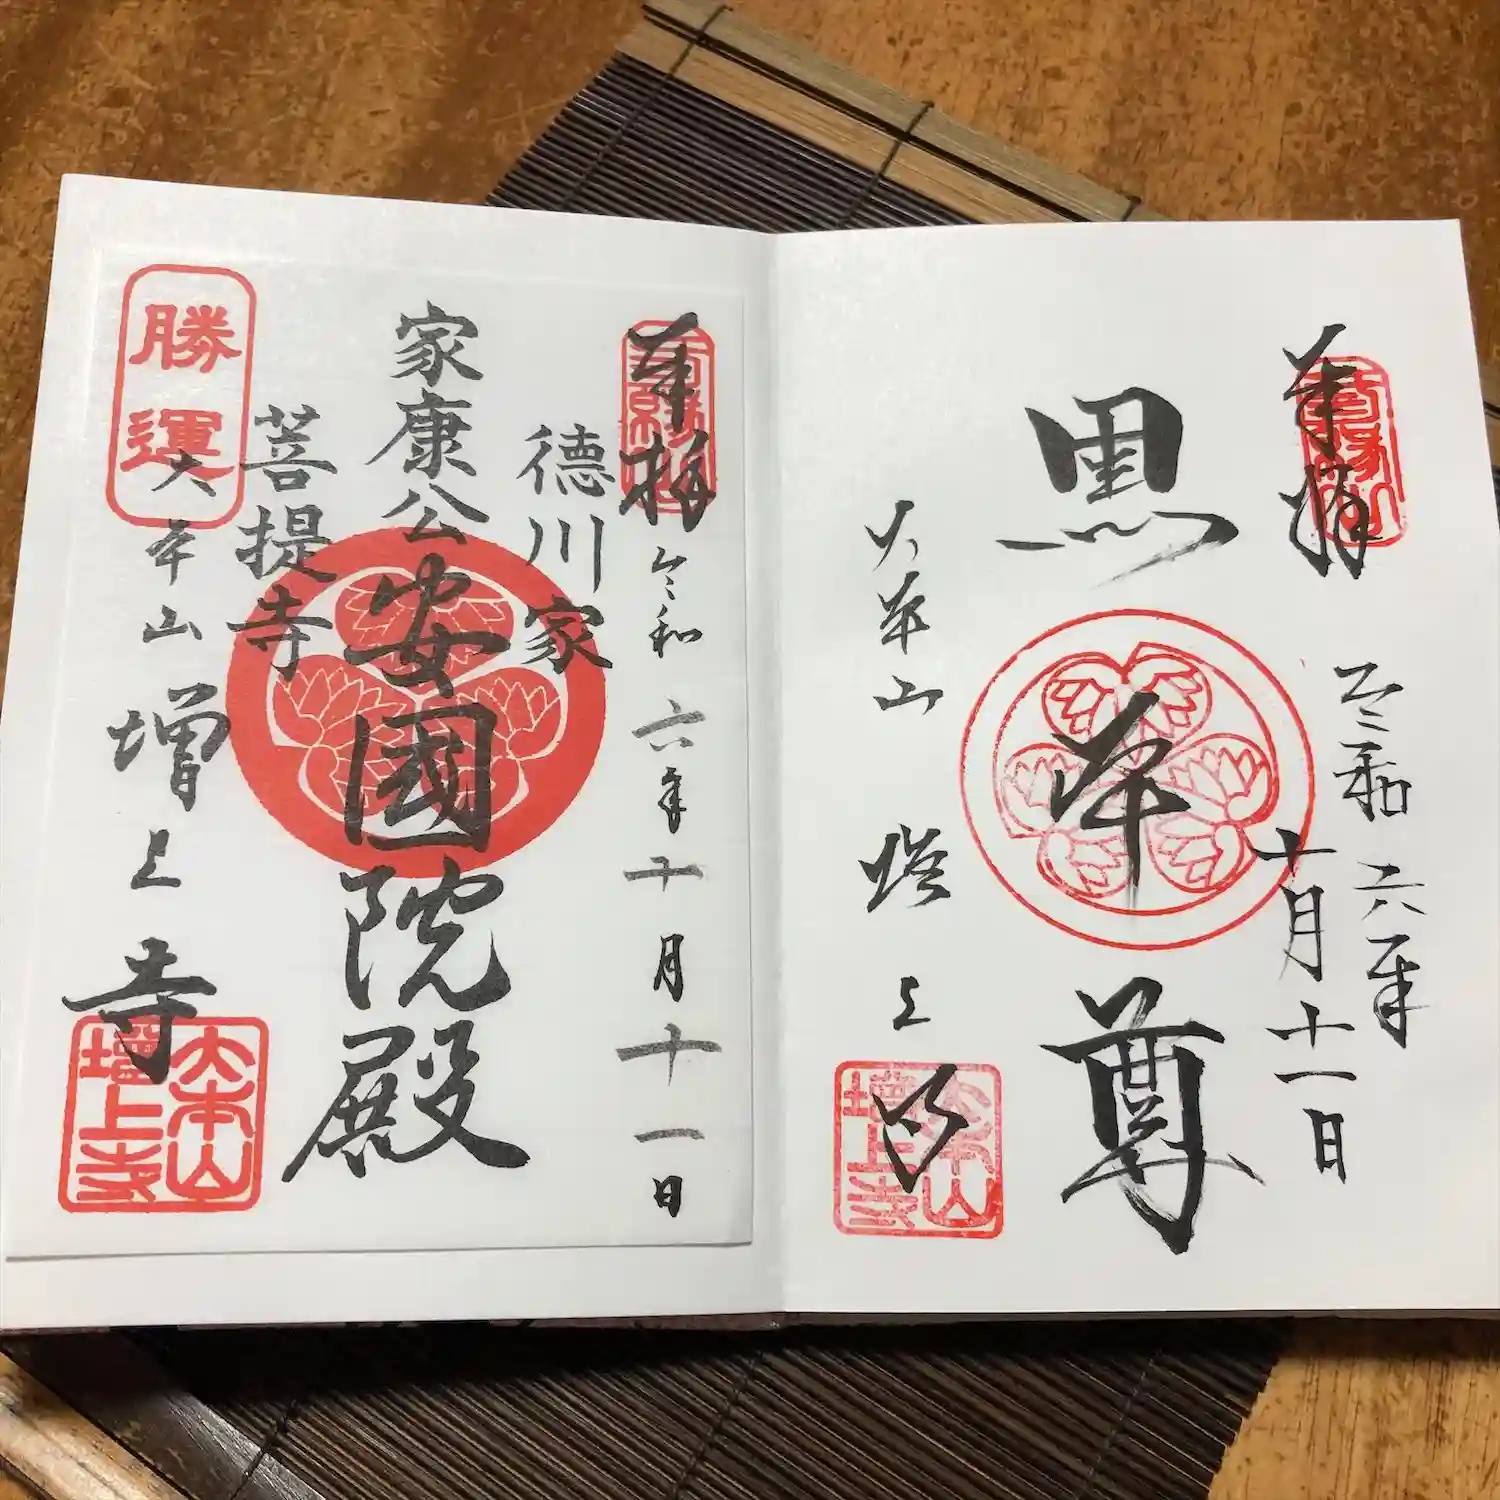 奉拝
令和六年
十月十一日
黒本尊
大本山
増上寺
大本山
増上寺
奉拝
令和六年十月十一日
徳川家
家康公
安國院殿
菩提寺
勝運
大本山
増上寺
大本山
増上寺